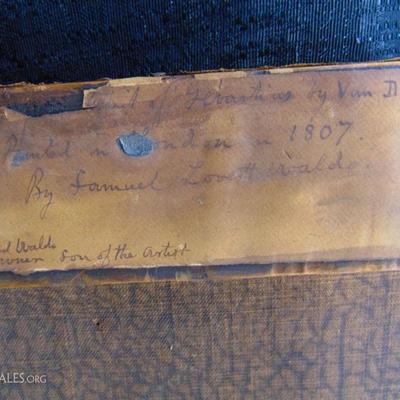 of Gebartius by Van D
Painted in London in 1807.
By Samuel Lovett Waldo
d Waldo
owner Son of the Artist
ALES.ORG